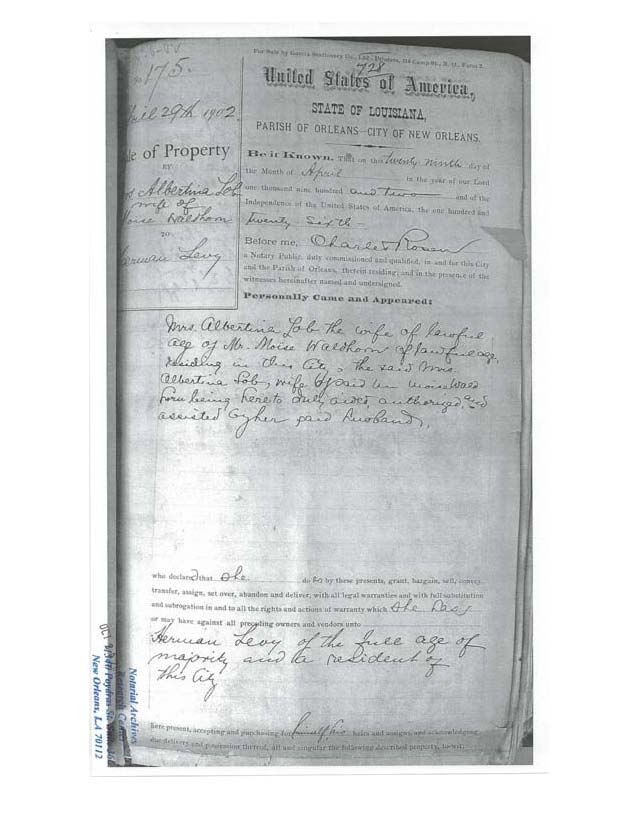 For Sale by Garcia Stationery Co., Ltd., Printers,
No 175.
728
United States of America,
April 29th 1902.
STATE OF LOUISIANA,
PARISH OF ORLEANS—CITY OF NEW ORLEANS.
Sale of Property
BY
Mrs Albertina Lob
wife of
Moise Waldhorn
TO
Herman Levy
Be it Known, That on this twenty ninth day of
the Month of April in the year of our Lord
one thousand nine hundred and two and of the
Independence of the United States of America, the one hundred and
twenty sixth
Before me, Charles Rosen
a Notary Public, duly commissioned and qualified, in and for this City
and the Parish of Orleans, therein residing; and in the presence of the
witnesses hereinafter named and undersigned.
Personally Came and Appeared:
Mrs. Albertina Lob the wife of lawful
age of Mr. Moise Waldhorn of lawful age,
residing in this City, the said Mrs.
Albertina Lob, wife of said Moise Wald
horn being hereto duly aided, authorized, and
assisted by her said husband,
who declared that she do es by these presents, grant, bargain, sell, convey
transfer, assign, set over, abandon and deliver, with all legal warranties and with full substitution
and subrogation in and to all the rights and actions of warranty which she has
or may have against all preceding owners and vendors unto
Herman Levy of the full age of
majority and a resident of
this City
here present, accepting and purchasing for himself, his heirs and assigns, and acknowledging
due delivery and possession thereof, all and singular the following described property, to-wit:
Notarial Archives
Research Center
Poydras St.
New Orleans, LA 70112
OCT